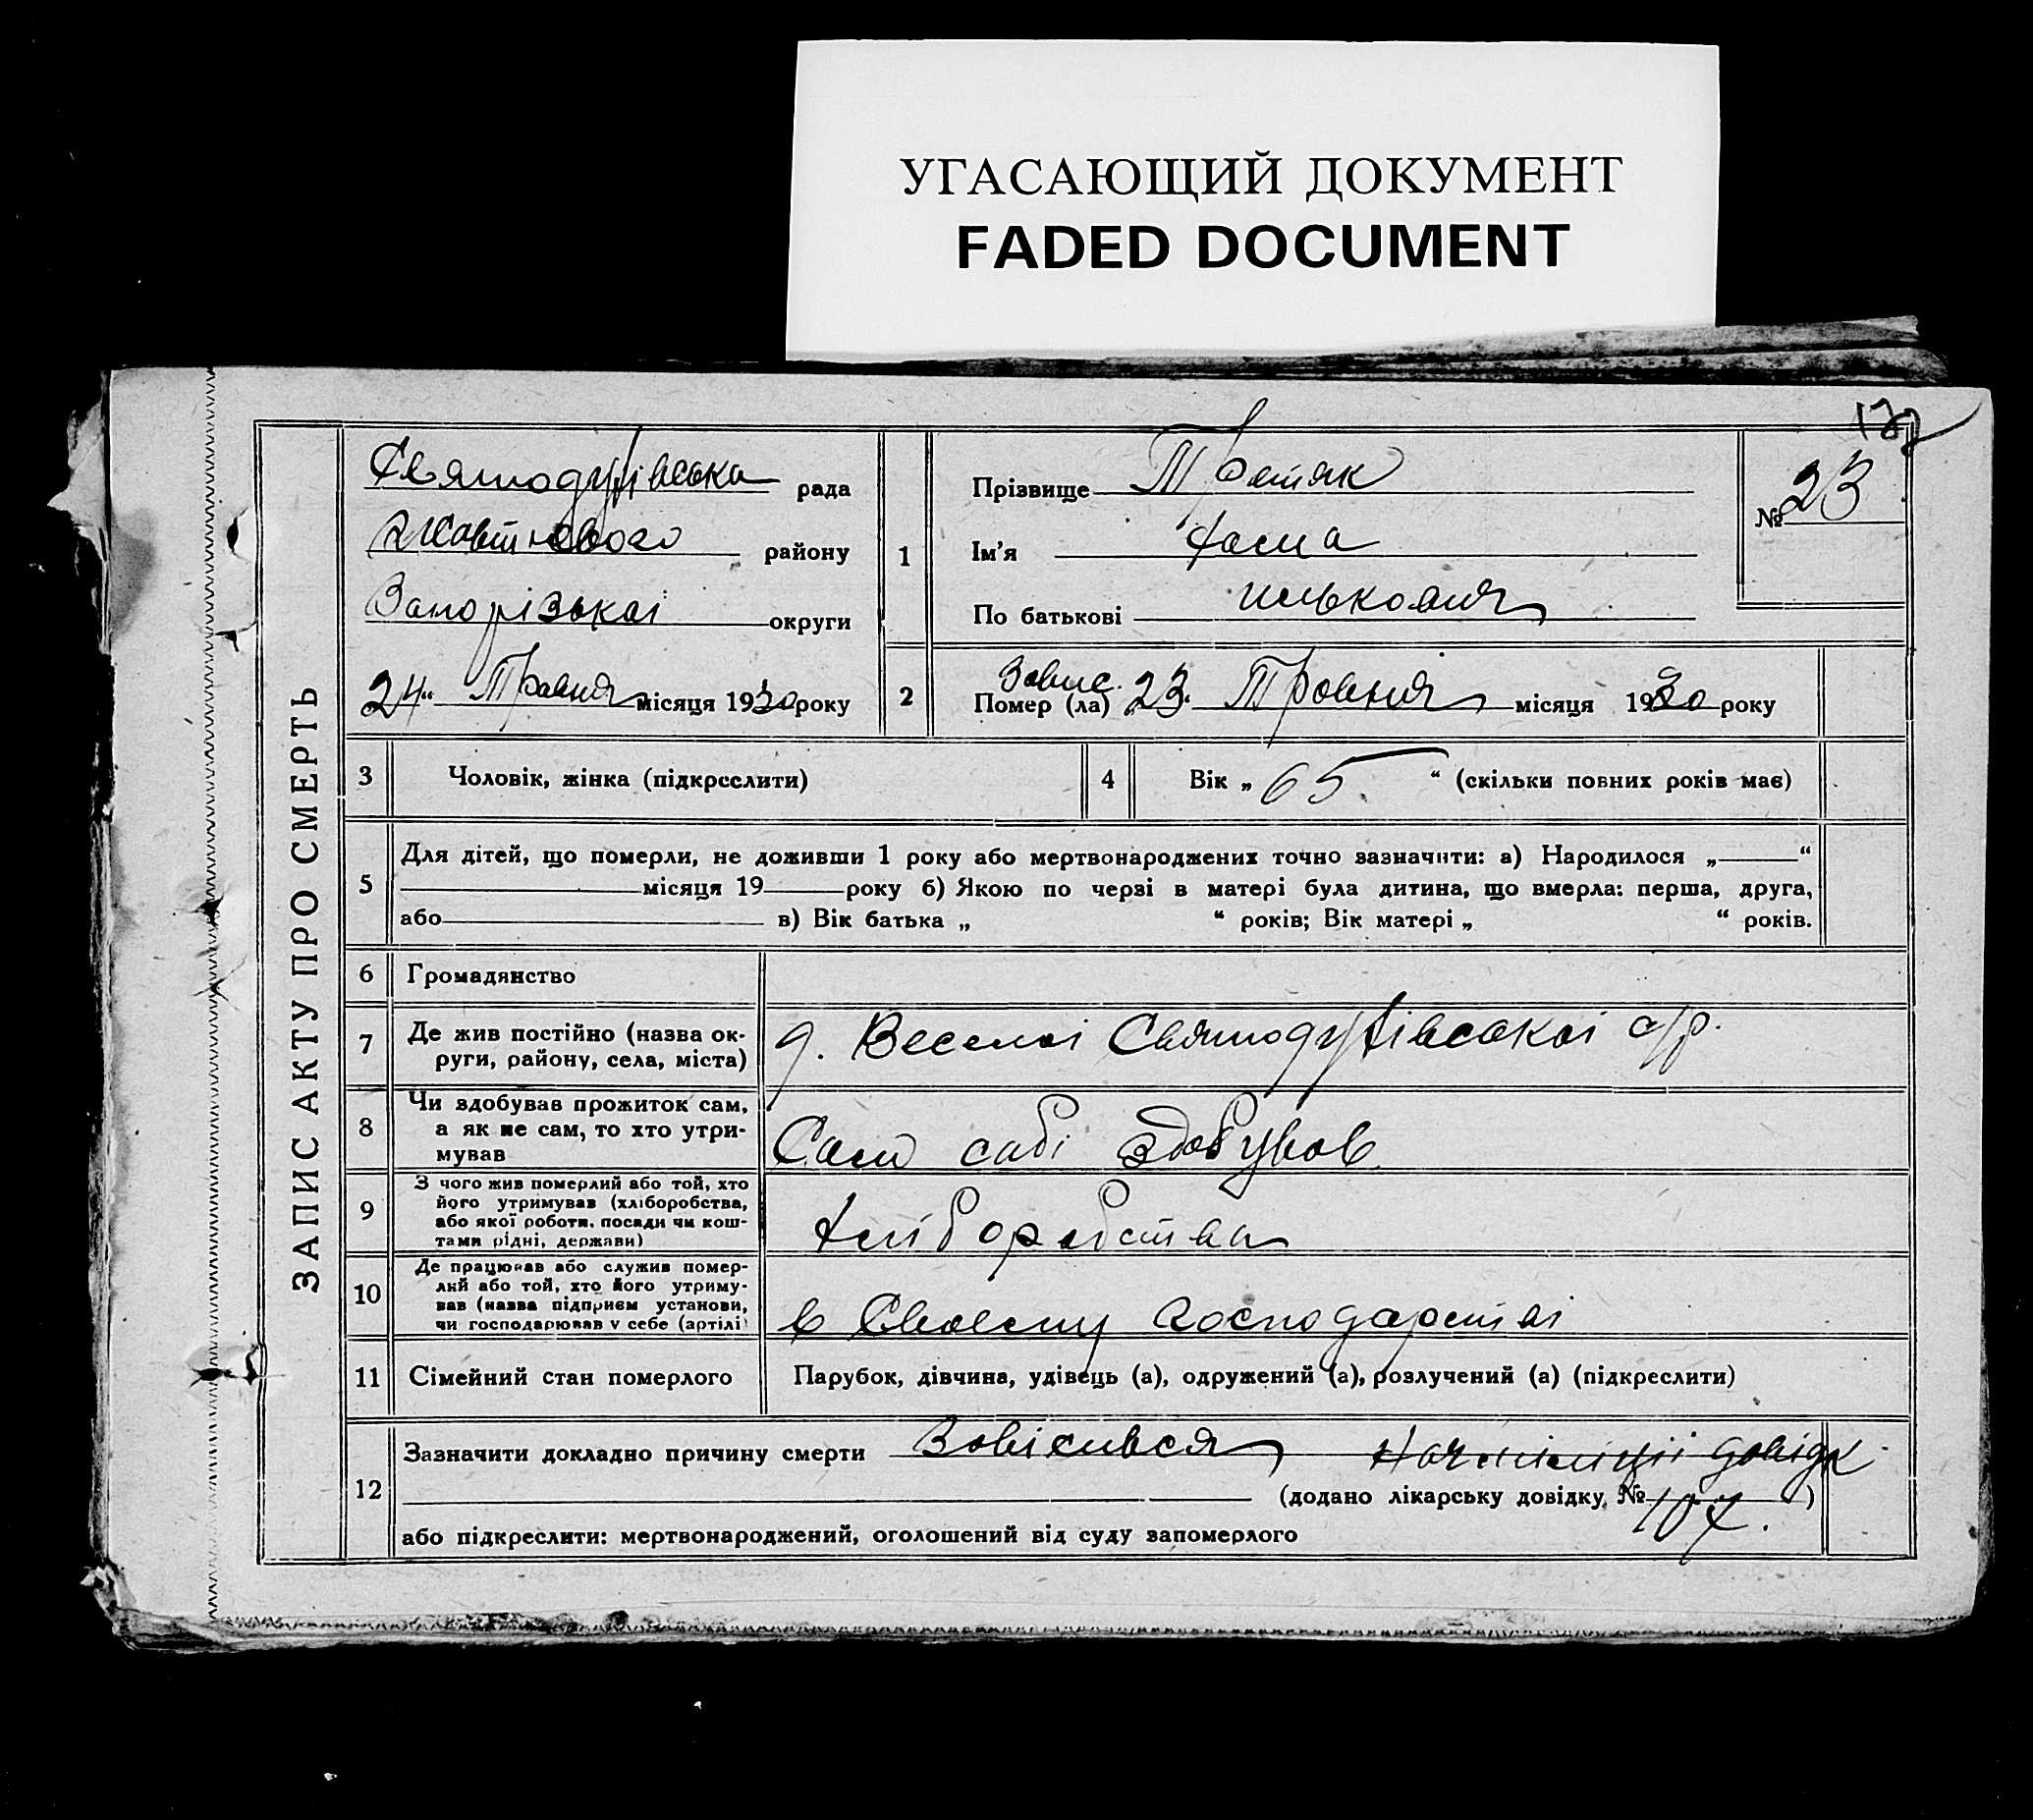 УГАСАЮЩИЙ ДОКУМЕНТ
FADED DOCUMENT
ЗАПИС АКТУ ПРО СМЕРТЬ
Святодухівська рада
Жовтневого району
Запорізькоі округи
24“ Травня місяця 1930 року
1
Прізвище Третяк
Ім'я Хома
По батькові
№ 23
2
Завис.
Помер (ла) „23“ Травня місяця 1930 року
3 Чоловік, жінка (підкреслити)
4 Вік „ 65 “ (скільки повних років має)
5
Для дітей, що померли, не доживши 1 року або мертвонароджених точно зазначити: а) Народилося „ “
місяця 19 року б) Якою по черзі в матері була дитина, що вмерла: перша, друга,
або в) Вік батька „ “ років; Вік матері „ “ років.
6 Громадянство
7 Де жив постійно (назва ок-
руги, району, села, міста)
д. Веселоі Святодухівськоі с/р.
8 Чи здобував прожиток сам,
а як не сам, то хто утри-
мував
Сам собі здобував
9 З чого жив померлий або той, хто
його утримував (хліборобства,
або якої роботи, посади чи кош-
тами рідні, держави)
Хліборобства
10 Де працював або служив помер-
лий або той, хто його утриму-
вав (назва підприєм установи,
чи господарював у себе (артілі)
в Своему господарстві
11 Сімейний стан померлого
Парубок, дівчина, удівець (а), одружений (а), розлучений (а) (підкреслити)
12
Зазначити докладно причину смерти Завісився довідк.
(додано лікарську довідку, № 107. )
або підкреслити: мертвонароджений, оголошений від суду запомерлого